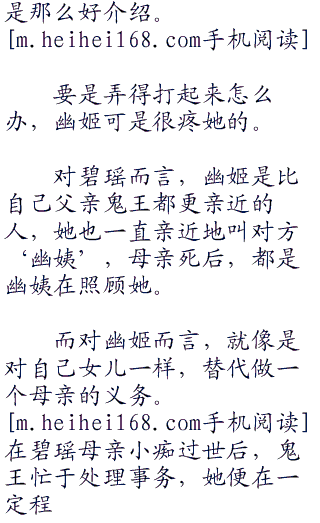 是那么好介绍。
[m.heihei168.com手机阅读]
要是弄得打起来怎么
办，幽姬可是很疼她的。
对碧瑶而言，幽姬是比
自己父亲鬼王都更亲近的
人，她也一直亲近地叫对方
‘幽姨’，母亲死后，都是
幽姨在照顾她。
而对幽姬而言，就像是
对自己女儿一样，替代做一
个母亲的义务。
[m.heihei168.com手机阅读]
在碧瑶母亲小痴过世后，鬼
王忙于处理事务，她便在一
定程